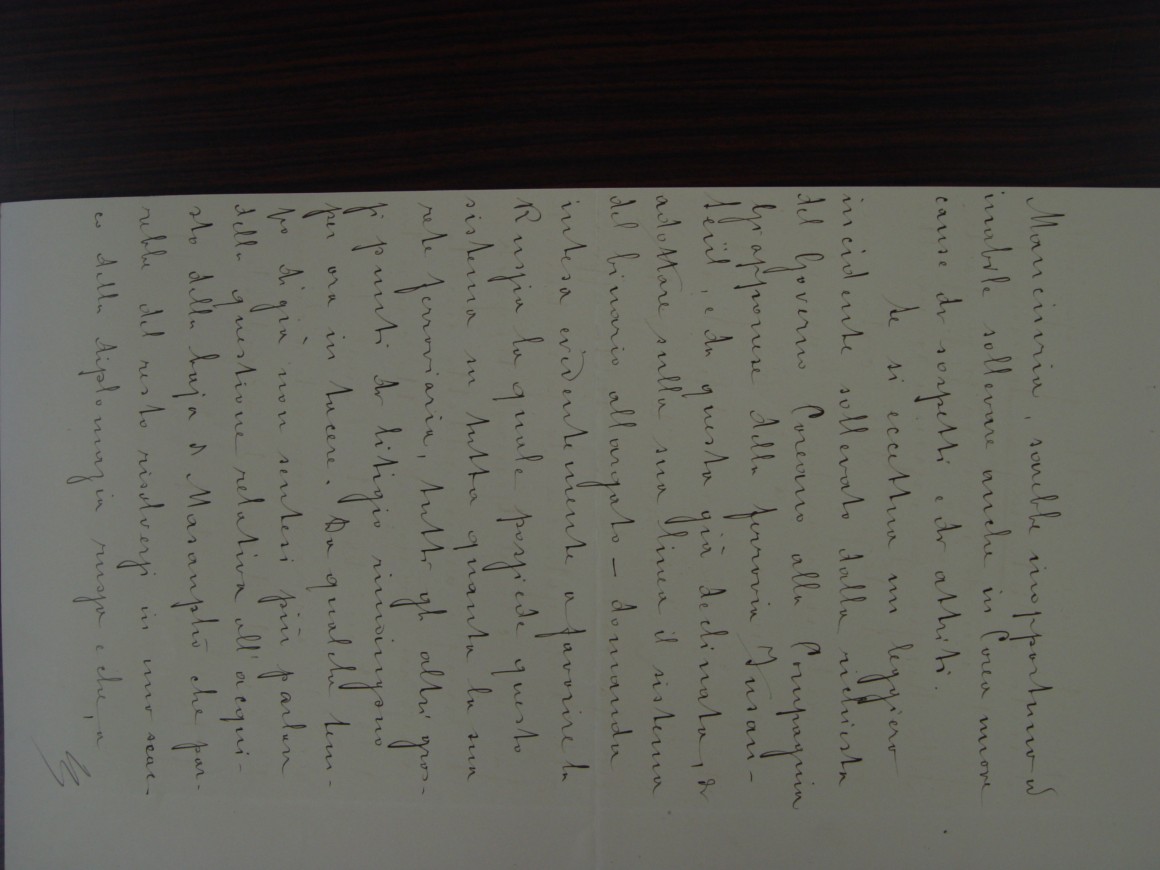 Manciuria, sarebbe inopportuno od
inabile sollevare anche in Corea nuove
cause di sospetti e di attriti.
Se si eccettua un leggiero
incidente sollevato dalla richiesta
del Governo Coreano alla Compagnia
Giapponese della ferrovia Fusan-
Seùl, e da questa già declinata, di
adottare sulla sua linea il sistema
del binario allargato – domanda
intesa evidentemente a favorire la
Russia la quale possiede questo
sistema su tutta quanta la sua
rete ferroviaria, tutti gli altri gros-
si punti di litigio rimangono
per ora in tacere. Da qualche tem-
po di già non sentesi più parlare
della questione relativa all'acqui-
sto della baja di Masanpho che par-
rebbe del resto risolversi in uno scac-
co della diplomazia russa e che, a